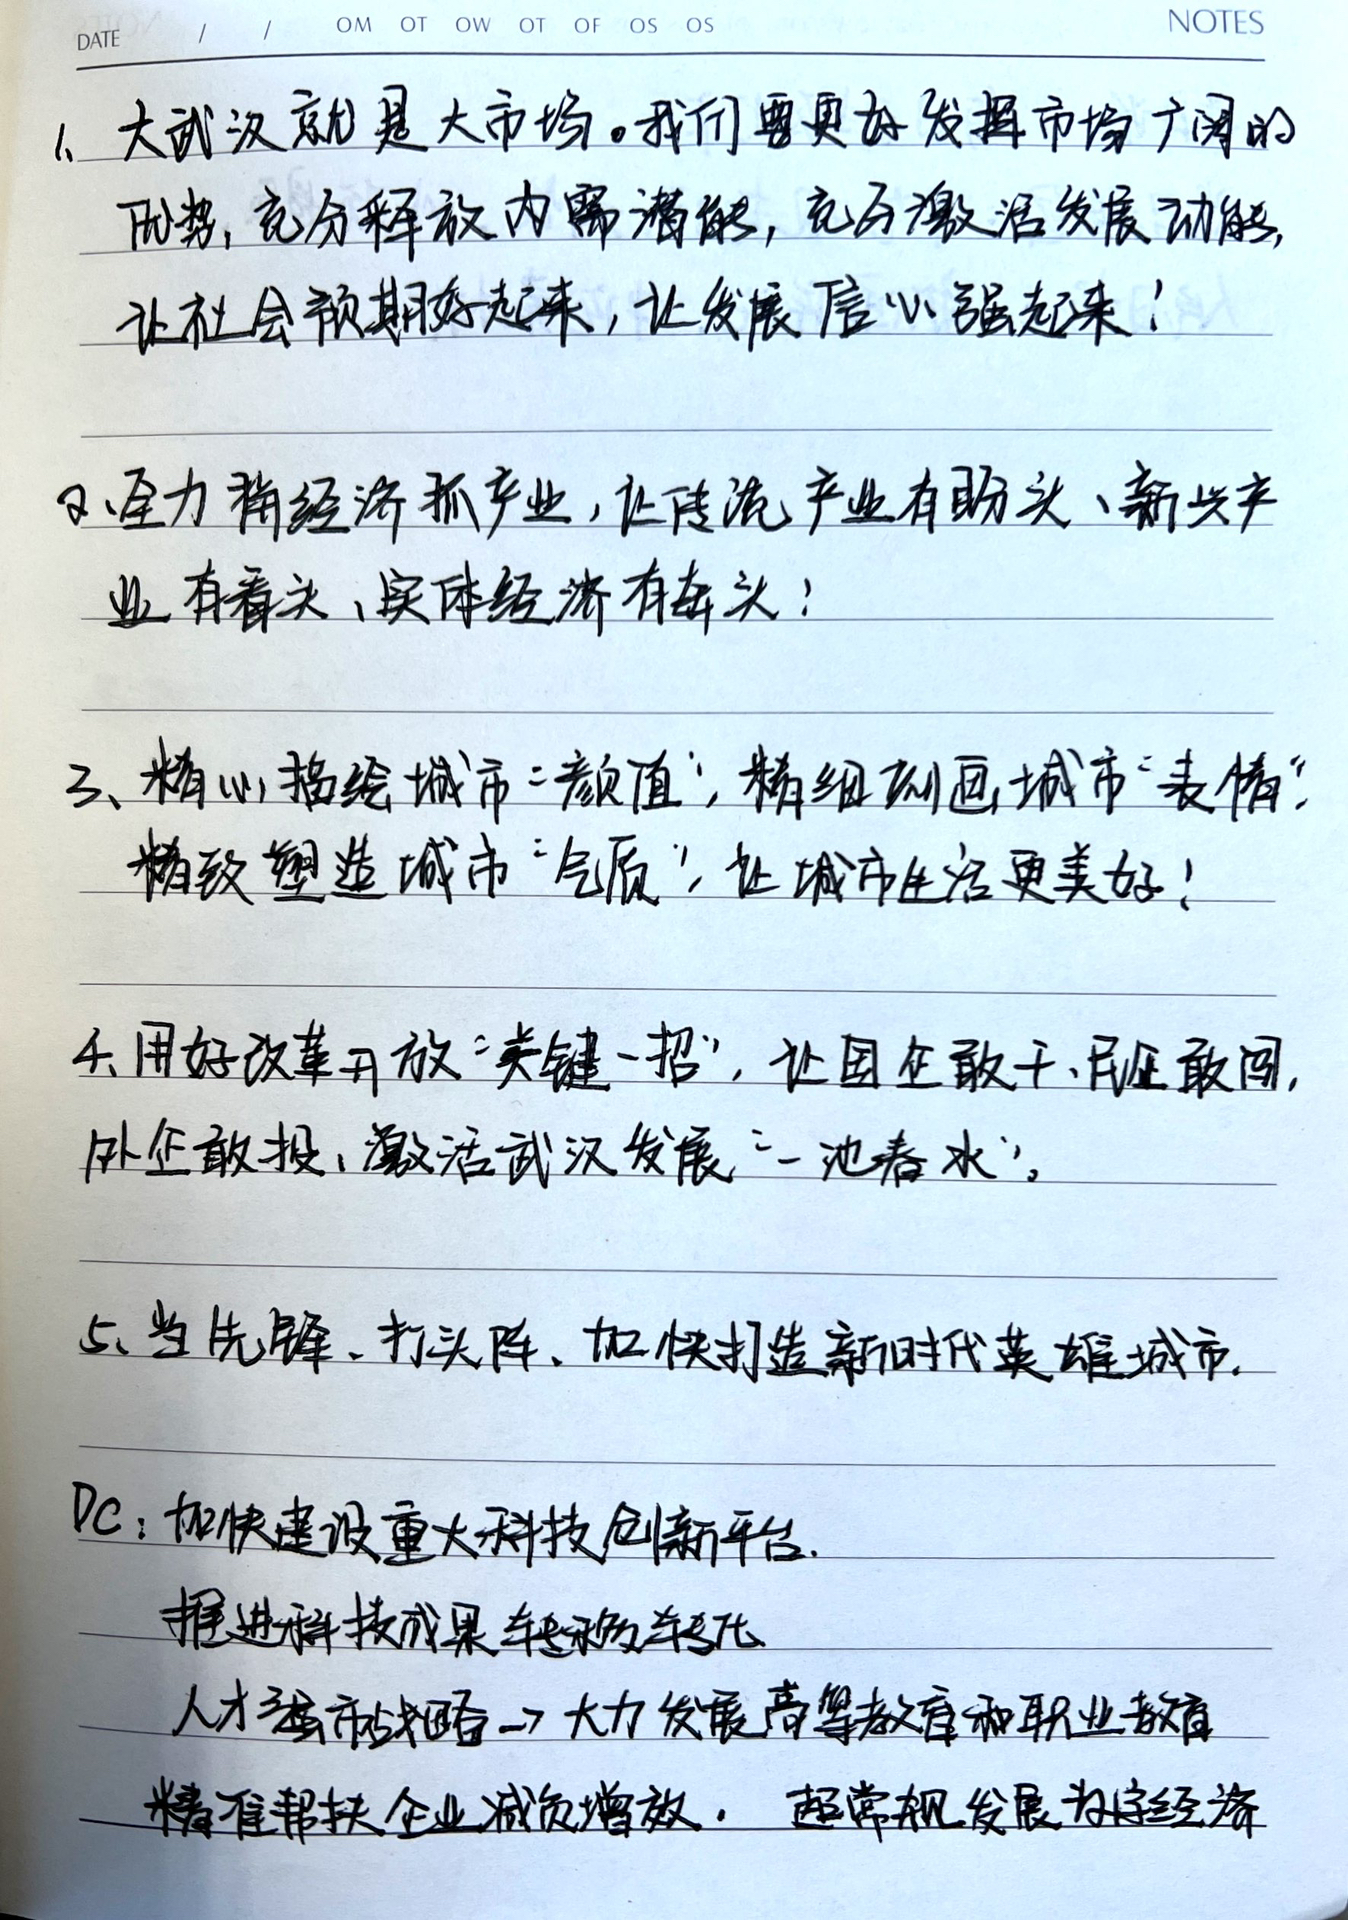 DATE / / OM OT OW OT OF OS OS NOTES
1、大武汉就是大市场。我们要更好发挥市场广阔的
优势,充分释放内需潜能,充分激活发展动能,
让社会预期好起来,让发展信心强起来!
2、全力稳经济抓产业,让传统产业有盼头、新兴产
业有看头、实体经济有奔头!
3、精心描绘城市“颜值”,精细刻画城市“表情”,
精致塑造城市“气质”,让城市生活更美好!
4、用好改革开放“关键一招”,让国企敢干、民企敢闯,
外企敢投、激活武汉发展“一池春水”。
5、当先锋、打头阵、加快打造新时代英雄城市.
DC:加快建设重大科技创新平台.
推进科技成果转移转化
人才强市战略→大力发展高等教育和职业教育
精准帮扶企业减负增效. 超常规发展数字经济